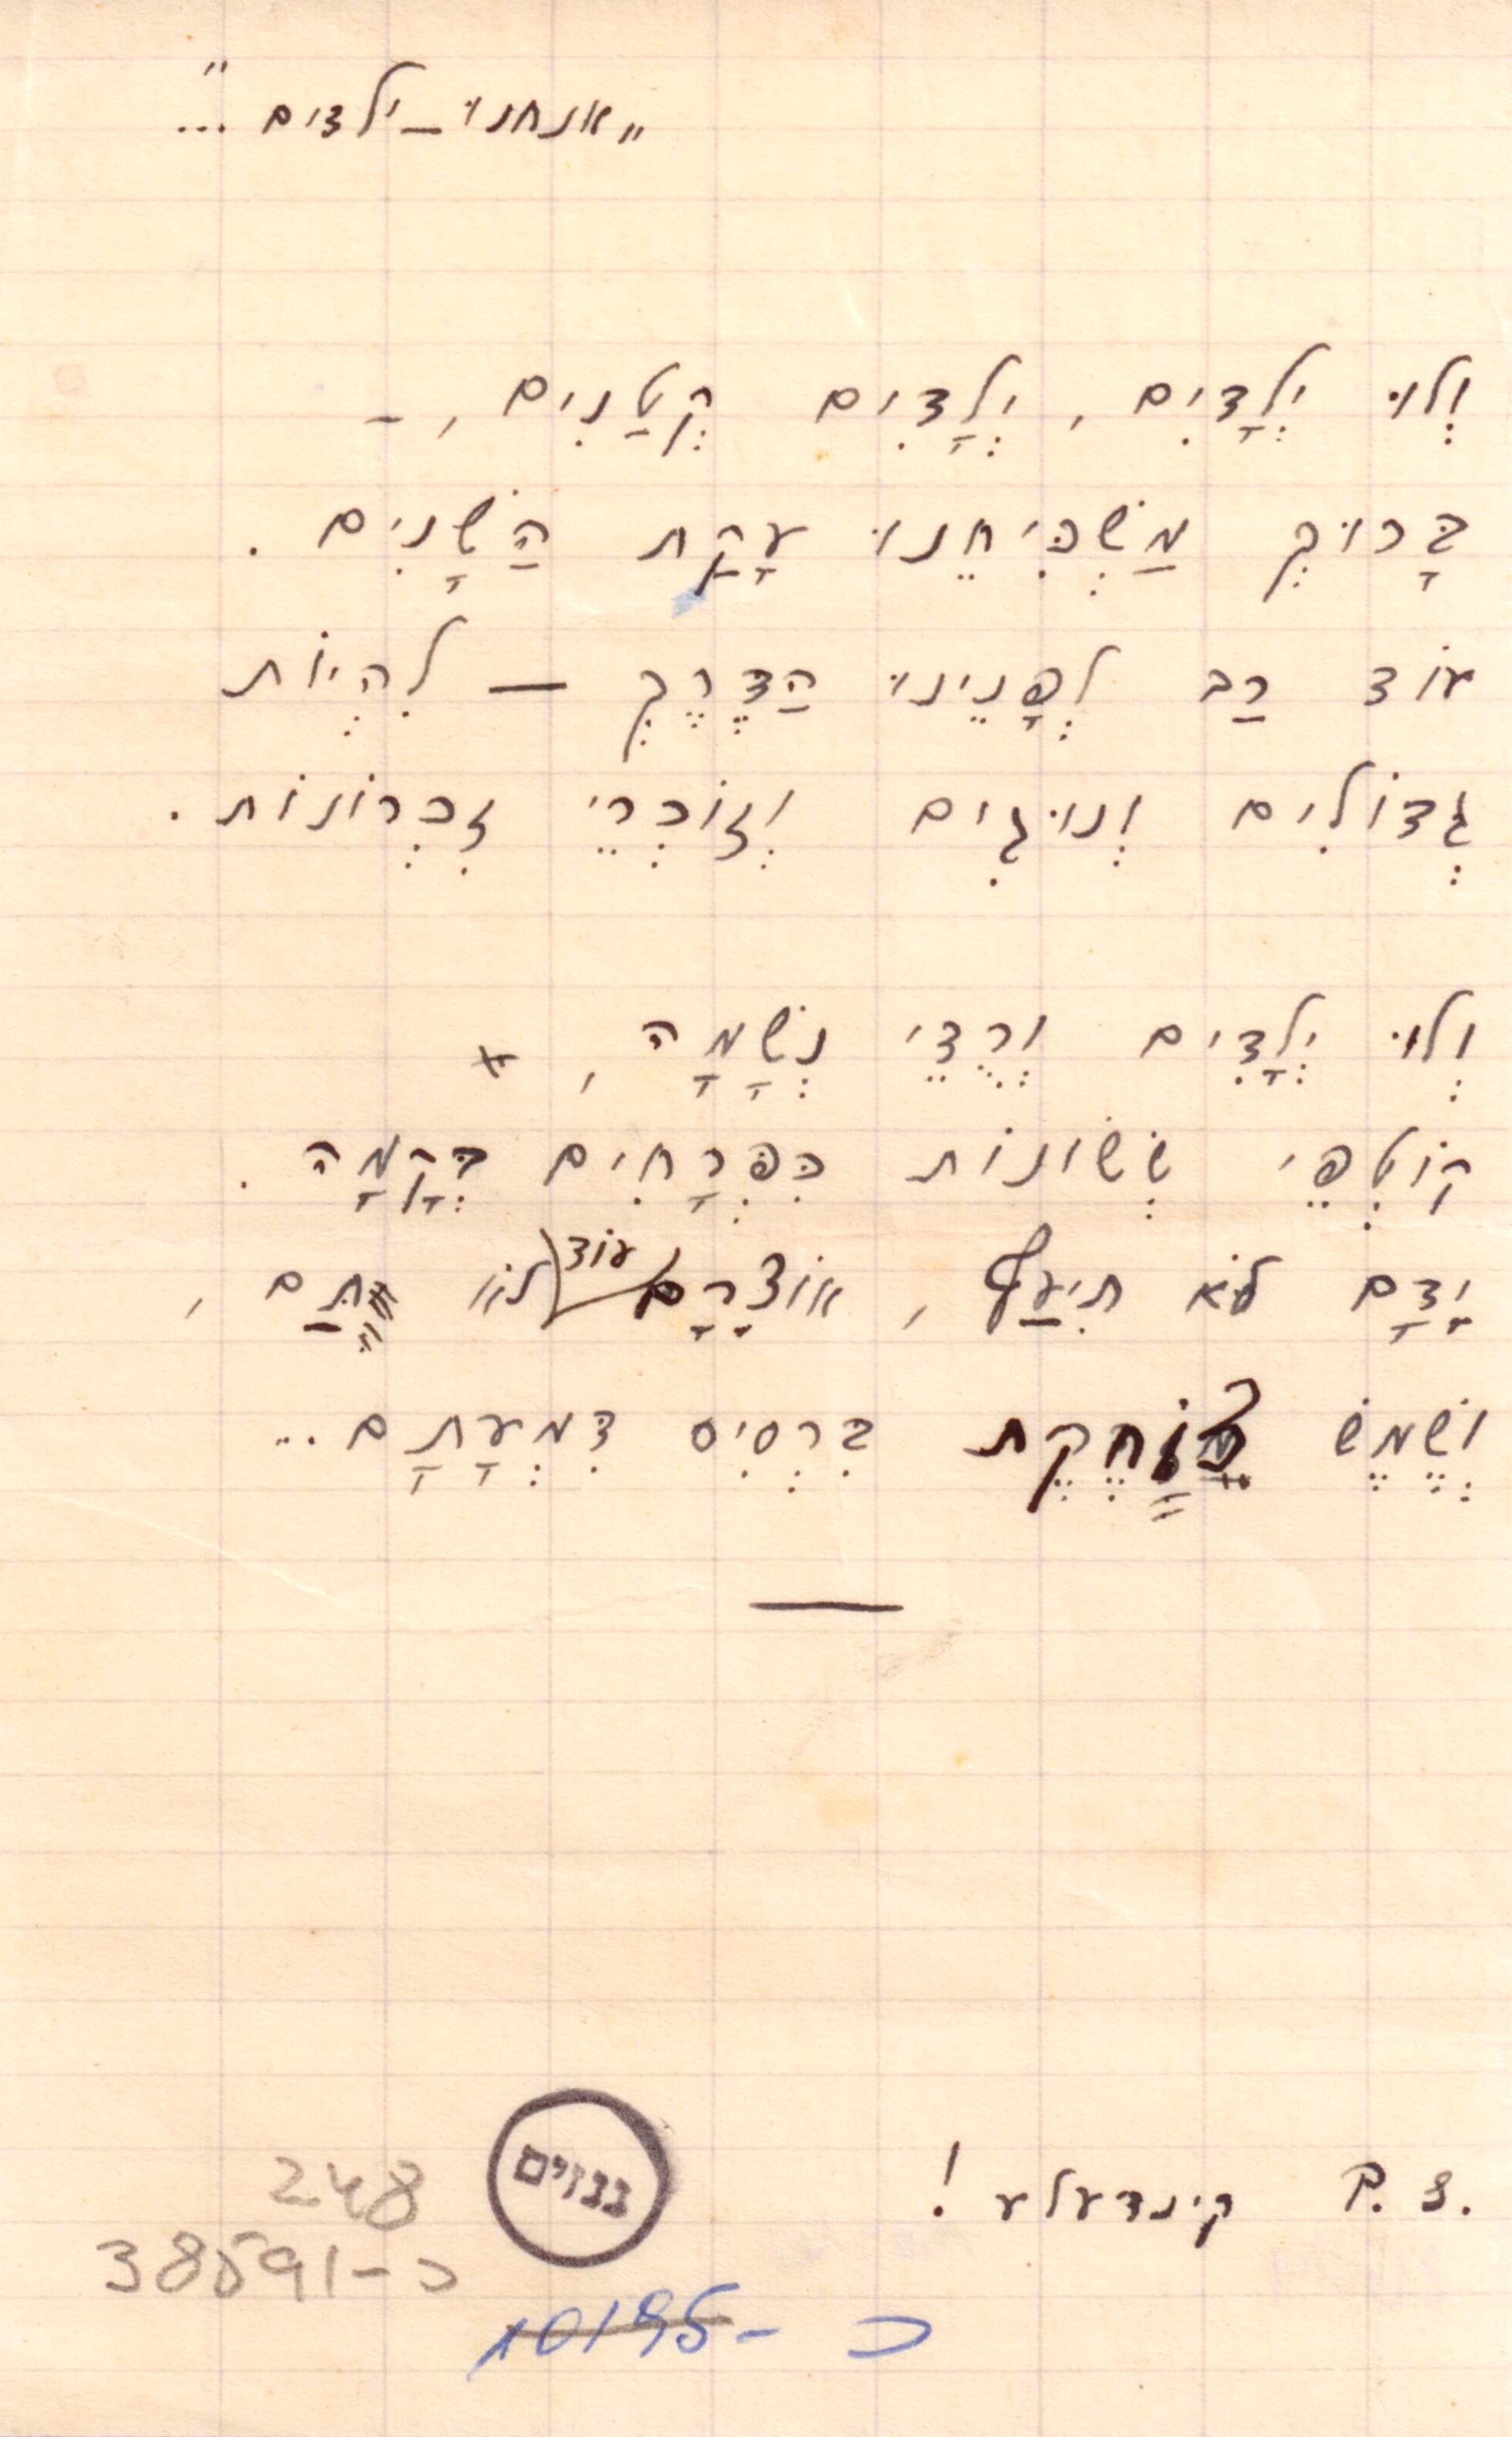 „אנחנוּ – ילדים..."
וְלוּ יְלָדִים, יְלָדִים קְטַנִּים, –
בָּרוּךְ מַשְׁכִּיחֵנוּ עָקַת הַשָּׁנִים.
עוֹד רַב לְפָנֵינוּ הַדֶּרֶךְ – לִהְיוֹת
גְּדוֹלִים וְנוּגִים וְזוֹכְרֵי זִכְרוֹנוֹת.
וְלוּ יְלָדִים וְרֻדֵּי נְשָׁמָה, *
קוֹטְפֵי שְׂשׂוֹנוֹת כִּפְרָחִים בְּקָמָה.
יָדָם לֹא תִּיעַף, אוֹצָרָם עוֹד לֹא תַם,
וְשֶׁמֶשׁ צוֹחֶקֶת בִּרְסִיס דִּמְעָתָם...
P.S. קינדעלע!
גנזים
248
38591-כ
10195- כ